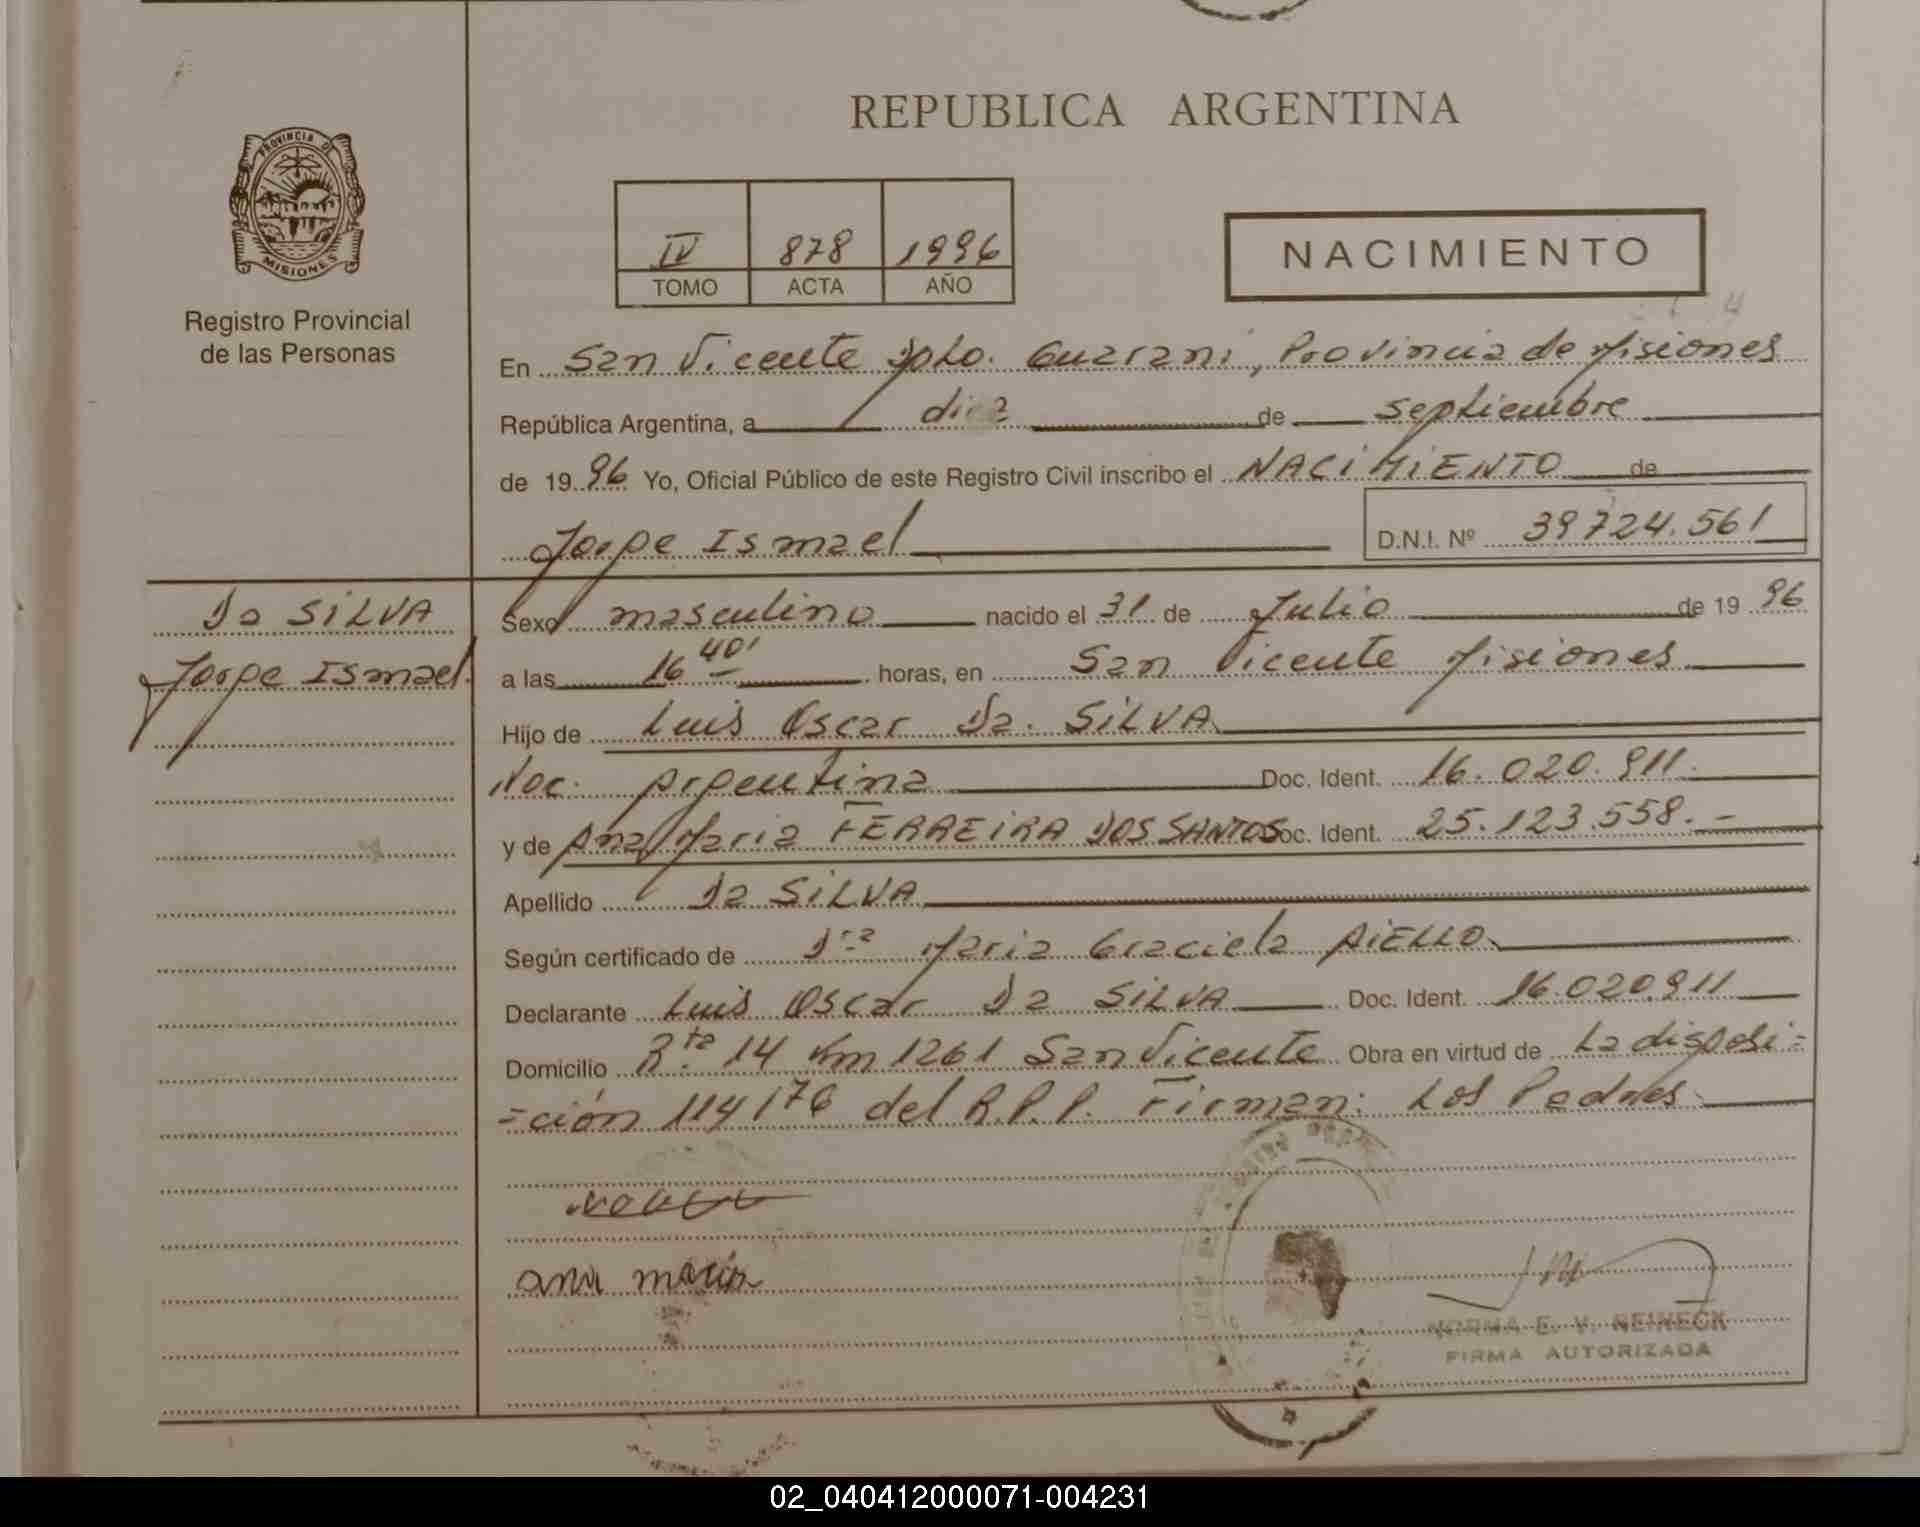 PROVINCIA DE
MISIONES
Registro Provincial
de las Personas
REPUBLICA ARGENTINA
IV 878 1996
TOMO ACTA AÑO
NACIMIENTO
En San Vicente Dpto. Guarani, Provincia de Misiones
República Argentina, a diez de septiembre
de 1996 Yo, Oficial Público de este Registro Civil inscribo el NACIMIENTO de
Jorge Ismael D.N.I. Nº 39724.561
Da SILVA
Jorge Ismael.
Sexo masculino nacido el 31 de Julio de 1996
a las 16 40' horas, en San Vicente Misiones
Hijo de Luis Oscar Da. SILVA
Nac. Argentina Doc. Ident. 16.020.911.
y de Ana Maria FERREIRA DOS SANTOS Doc. Ident. 25.123.558.-
Apellido Da SILVA
Según certificado de Dra Maria Graciela AIELLO
Declarante Luis Oscar Da SILVA Doc. Ident. 16.020.911
Domicilio Rta 14 Km 1261 San Vicente Obra en virtud de La disposi=
=ción 114/76 del R.P.P. Firman: Los Padres
ana maria
NORMA E. V. REINECK
FIRMA AUTORIZADA
02_040412000071-004231